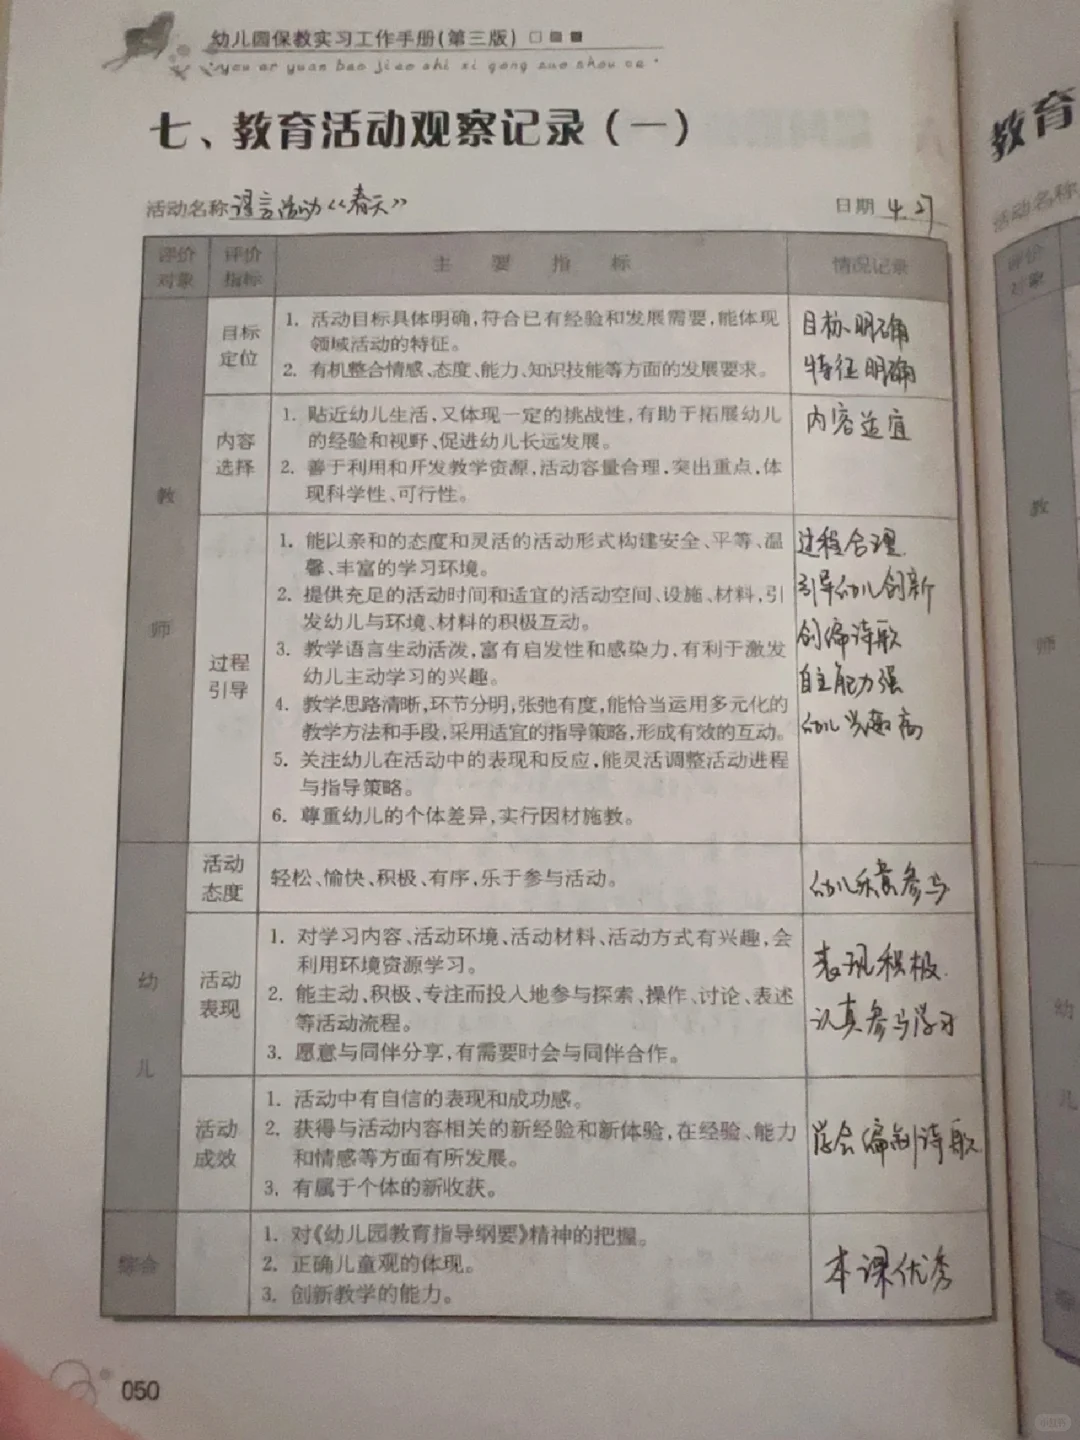 幼儿园保教实习工作手册(第三版)
you er yuan bao jiao shi xi gong zuo shou ce
七、教育活动观察记录(一)
活动名称 语言活动《春天》
日期 4.27
评价对象 评价指标 主要指标 情况记录
教师
目标定位
1. 活动目标具体明确,符合已有经验和发展需要,能体现
领域活动的特征。
2. 有机整合情感、态度、能力、知识技能等方面的发展要求。
目标明确
特征明确
内容选择
1. 贴近幼儿生活,又体现一定的挑战性,有助于拓展幼儿
的经验和视野、促进幼儿长远发展。
2. 善于利用和开发教学资源,活动容量合理,突出重点,体
现科学性、可行性。
内容适宜
过程引导
1. 能以亲和的态度和灵活的活动形式构建安全、平等、温
馨、丰富的学习环境。
2. 提供充足的活动时间和适宜的活动空间、设施、材料,引
发幼儿与环境、材料的积极互动。
3. 教学语言生动活泼,富有启发性和感染力,有利于激发
幼儿主动学习的兴趣。
4. 教学思路清晰,环节分明,张弛有度,能恰当运用多元化的
教学方法和手段,采用适宜的指导策略,形成有效的互动。
5. 关注幼儿在活动中的表现和反应,能灵活调整活动进程
与指导策略。
6. 尊重幼儿的个体差异,实行因材施教。
过程合理
引导幼儿创新
创编诗歌
自主能力强
幼儿兴趣高
幼儿
活动态度
轻松、愉快、积极、有序,乐于参与活动。
幼儿乐意参与
活动表现
1. 对学习内容、活动环境、活动材料、活动方式有兴趣,会
利用环境资源学习。
2. 能主动、积极、专注而投入地参与探索、操作、讨论、表述
等活动流程。
3. 愿意与同伴分享,有需要时会与同伴合作。
表现积极
认真参与学习
活动成效
1. 活动中有自信的表现和成功感。
2. 获得与活动内容相关的新经验和新体验,在经验、能力
和情感等方面有所发展。
3. 有属于个体的新收获。
学会编制诗歌
综合
1. 对《幼儿园教育指导纲要》精神的把握。
2. 正确儿童观的体现。
3. 创新教学的能力。
本课优秀
050
教育
活动名称
评价对象
教
师
幼
儿
小红书